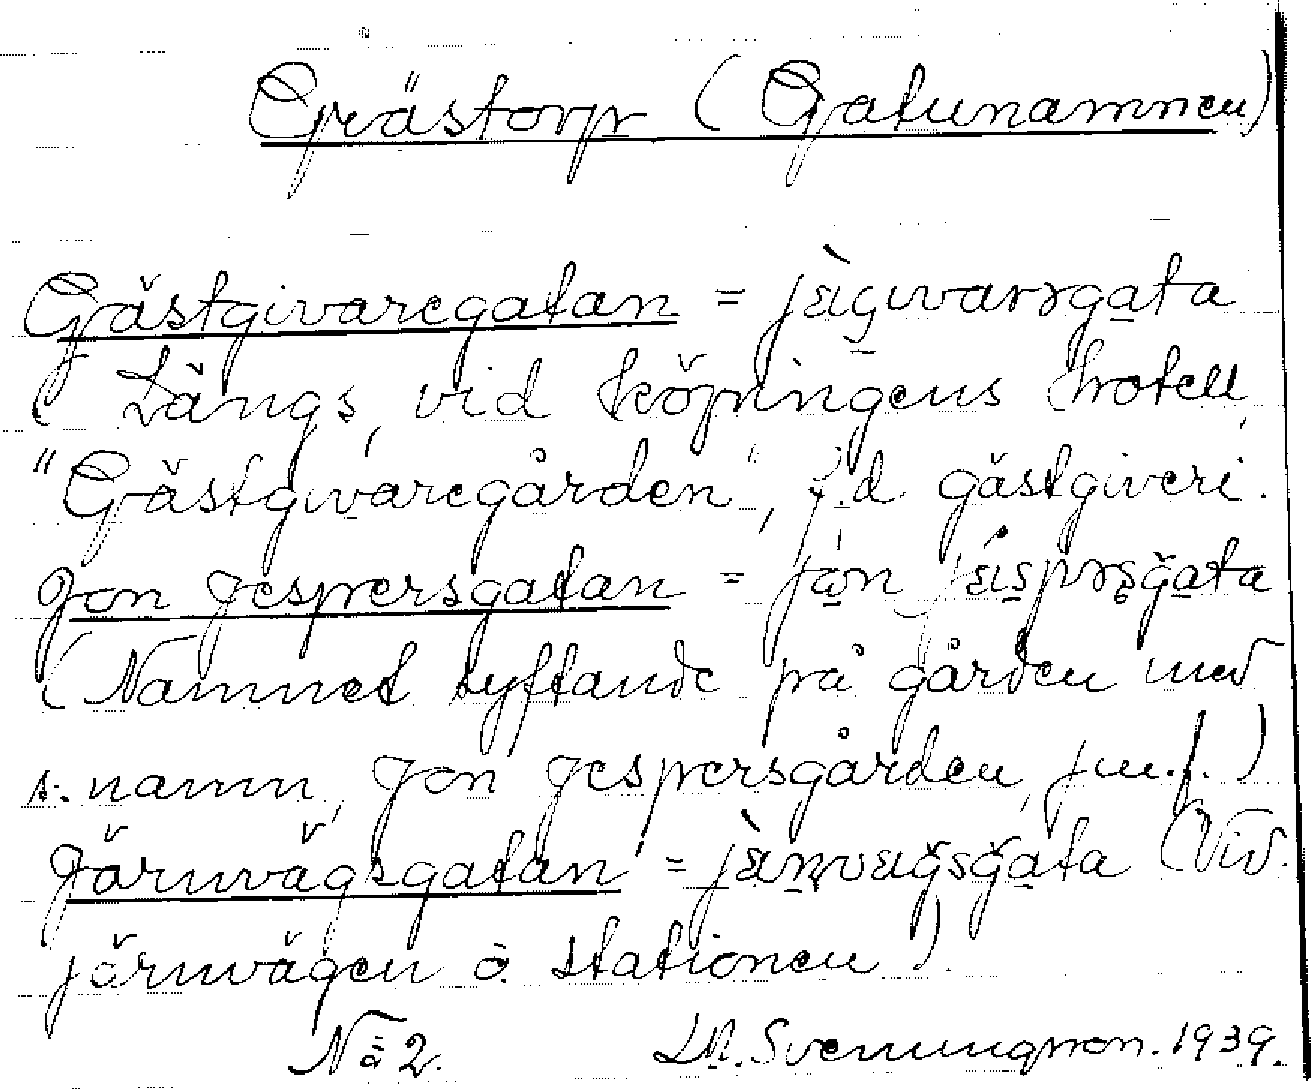 Grästorp (Gatunamnen)
Gästgivaregatan =
(Längs, vid köpingens hotell,
"Gästgivaregården", f.d. gästgiveri.
Jon Jespersgatan =
(Namnet syftande på gården med
s. namn, Jon Jespersgården, jm.f.)
Järnvägsgatan = (Vid.
järnvägen o. stationen).
2. Svenningson. 1939.